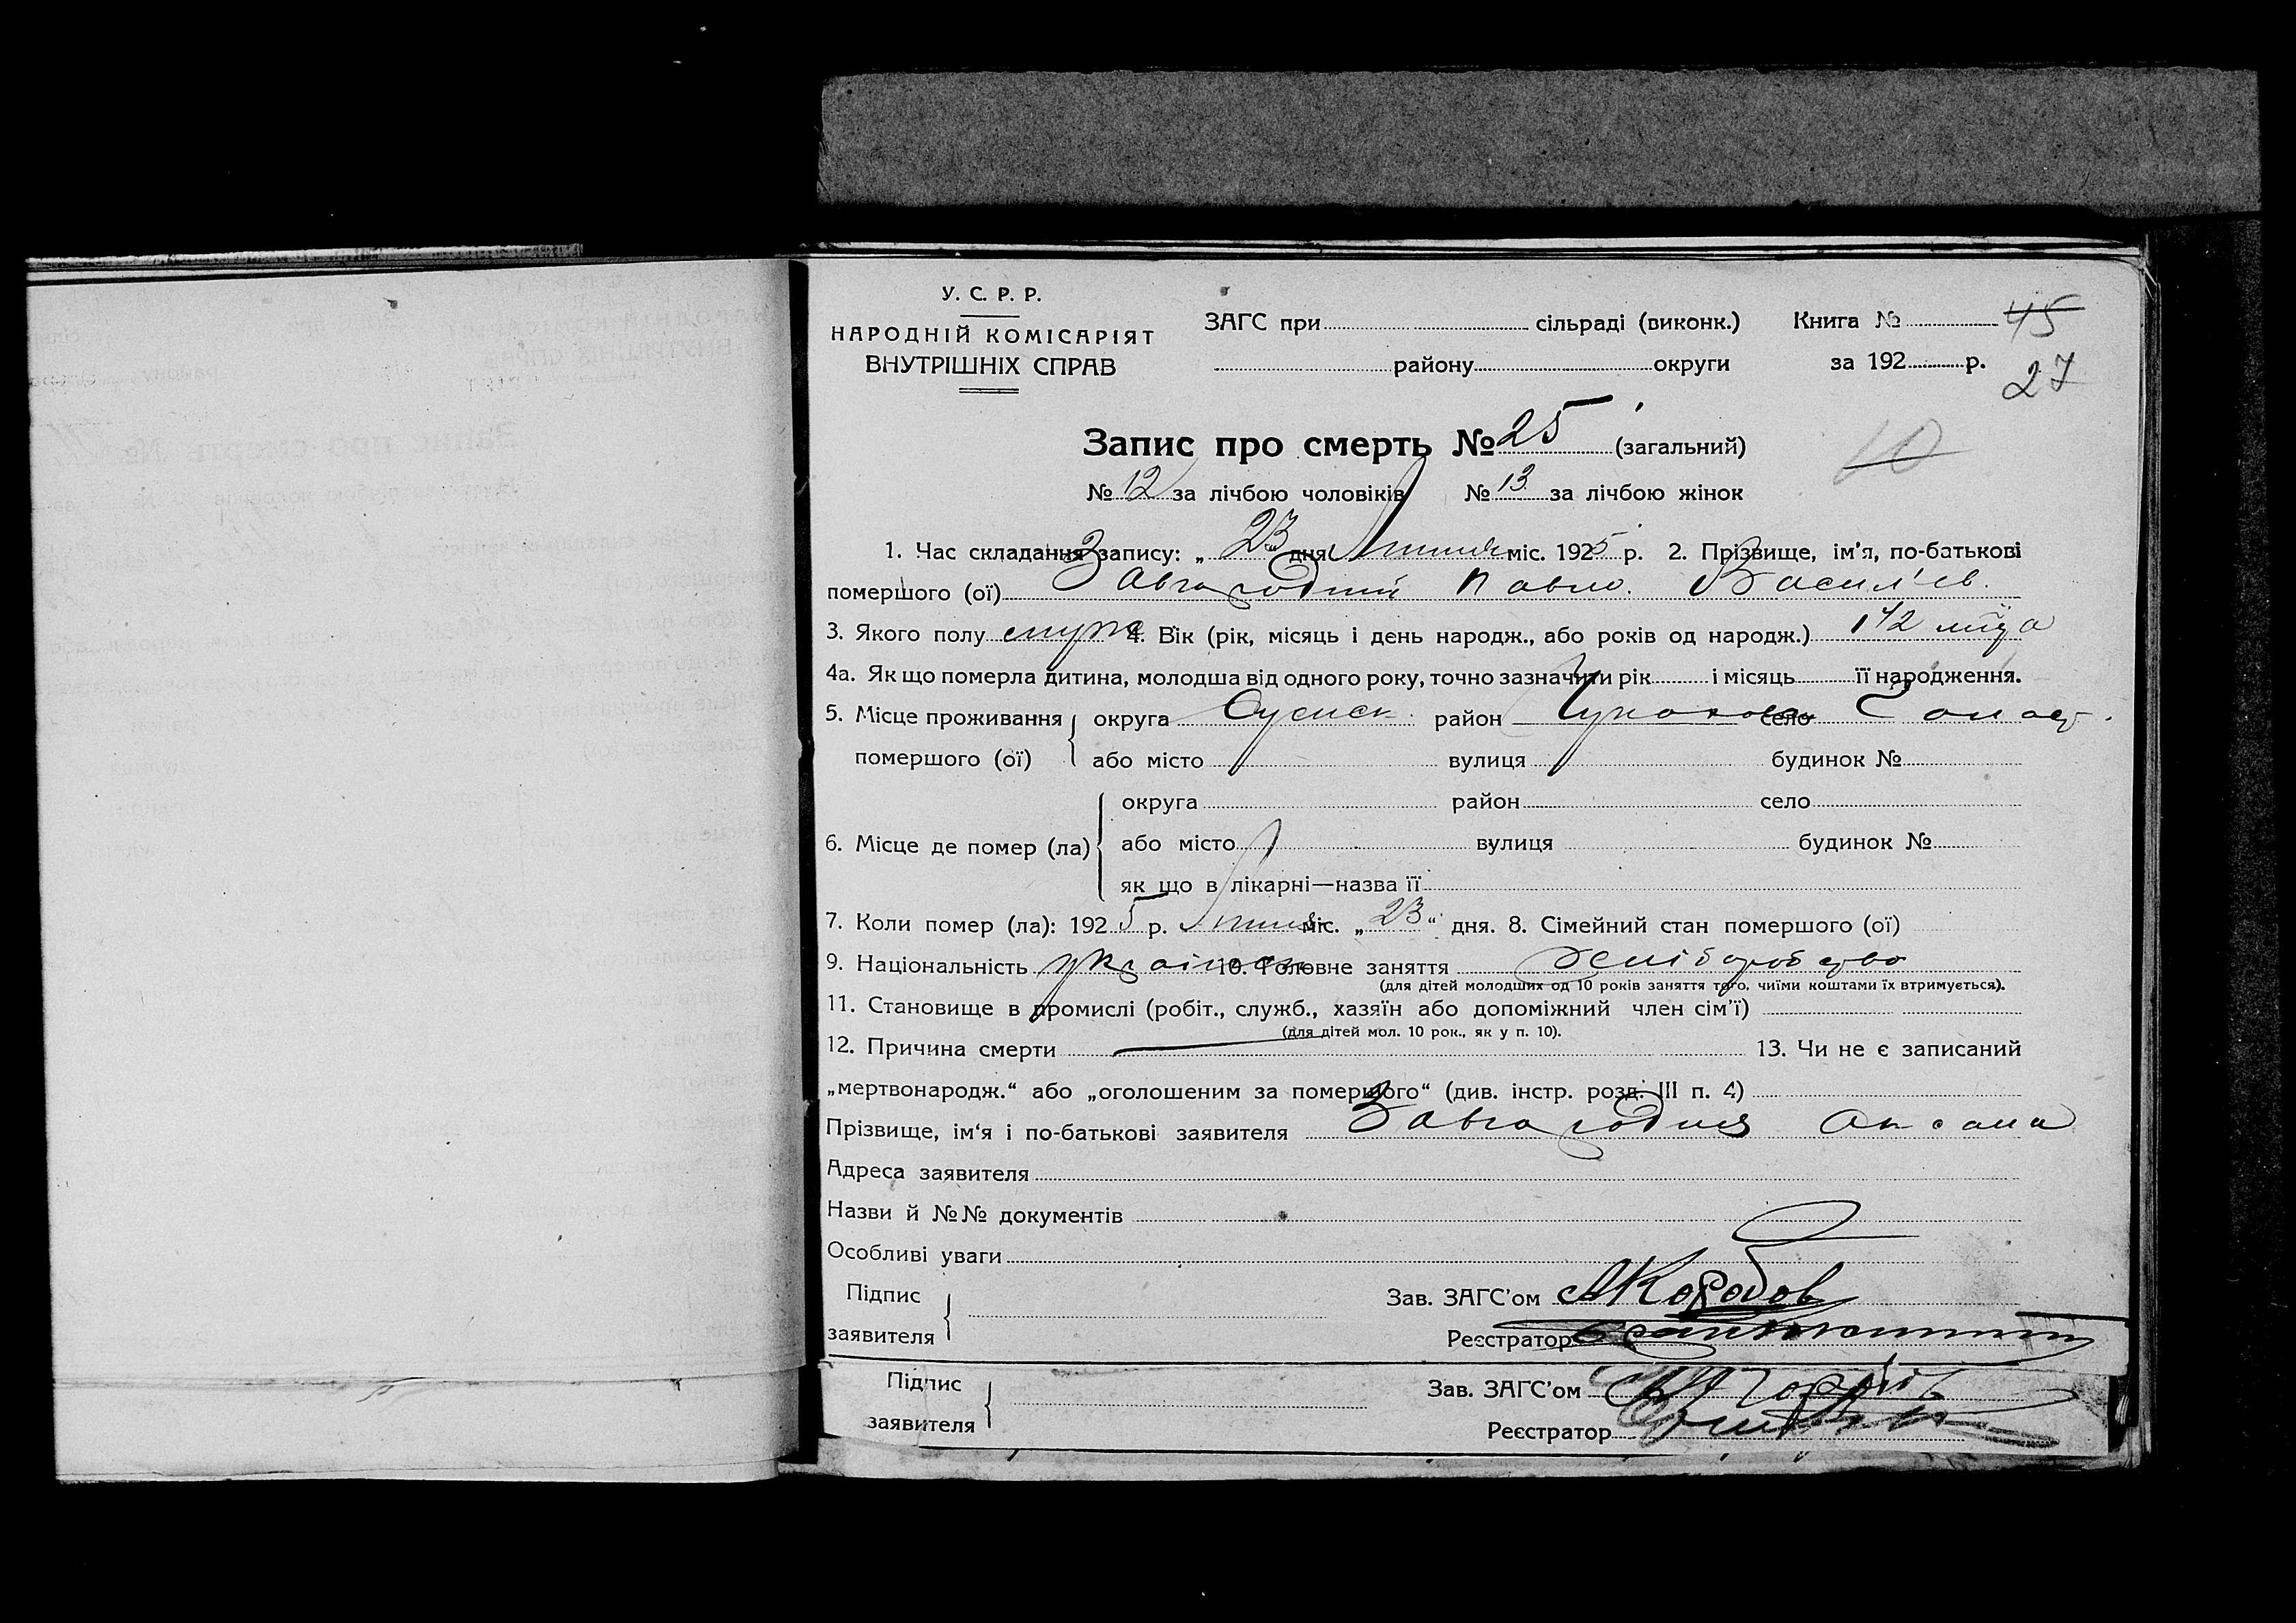 У. С. Р. Р.
НАРОДНІЙ КОМІСАРІЯТ
ВНУТРІШНІХ СПРАВ
ЗАГС при сільраді (виконк.)
району округи
Книга № 45
за 192 р. 27
Запис про смерть № 25 (загальний)
10
№ 12 за лічбою чоловіків № 13 за лічбою жінок
1. Час складання запису: „23“ дня липня міс. 1925 р. 2. Прізвище, ім'я, по-батькові
помершого (ої) Завгородний Павло. Васил'ев.
3. Якого полу 4. Вік (рік, місяць і день народж., або років од народж.) 1 1/2
4а. Як що померла дитина, молодша від одного року, точно зазначити рік і місяць її народження.
5. Місце проживання округа район село
помершого (ої) або місто вулиця будинок №
округа район село
6. Місце де помер (ла) або місто вулиця будинок №
як що в лікарні—назва її
7. Коли помер (ла): 1925 р. липня міс. „23“ дня. 8. Сімейний стан помершого (ої)
9. Національність 10. Головне заняття хліборобство
(для дітей молодших од 10 років заняття того, чиїми коштами їх втримується).
11. Становище в промислі (робіт., служб., хазяїн або допоміжний член сім'ї)
(для дітей мол. 10 рок., як у п. 10).
12. Причина смерти 13. Чи не є записаний
„мертвонародж.“ або „оголошеним за помершого“ (див. інстр. розд. III п. 4)
Прізвище, ім'я і по-батькові заявителя Завгородня Оксана
Адреса заявителя
Назви й №№ документів
Особливі уваги
Підпис Зав. ЗАГС'ом
заявителя Реєстратор
Підпис Зав. ЗАГС'ом
заявителя Реєстратор